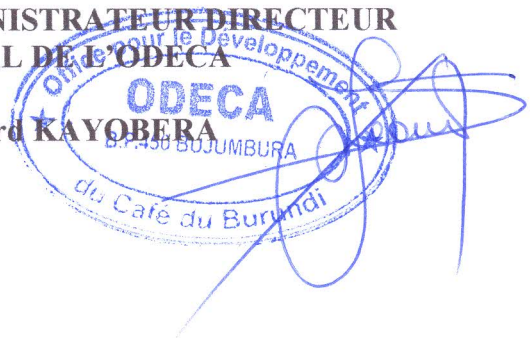 NISTRATEUR DIRECTEUR
L DE L'ODECA
rd KAYOBERA
Office pour le Développement
ODECA
B.P.450 BUJUMBURA
du Café du Burundi